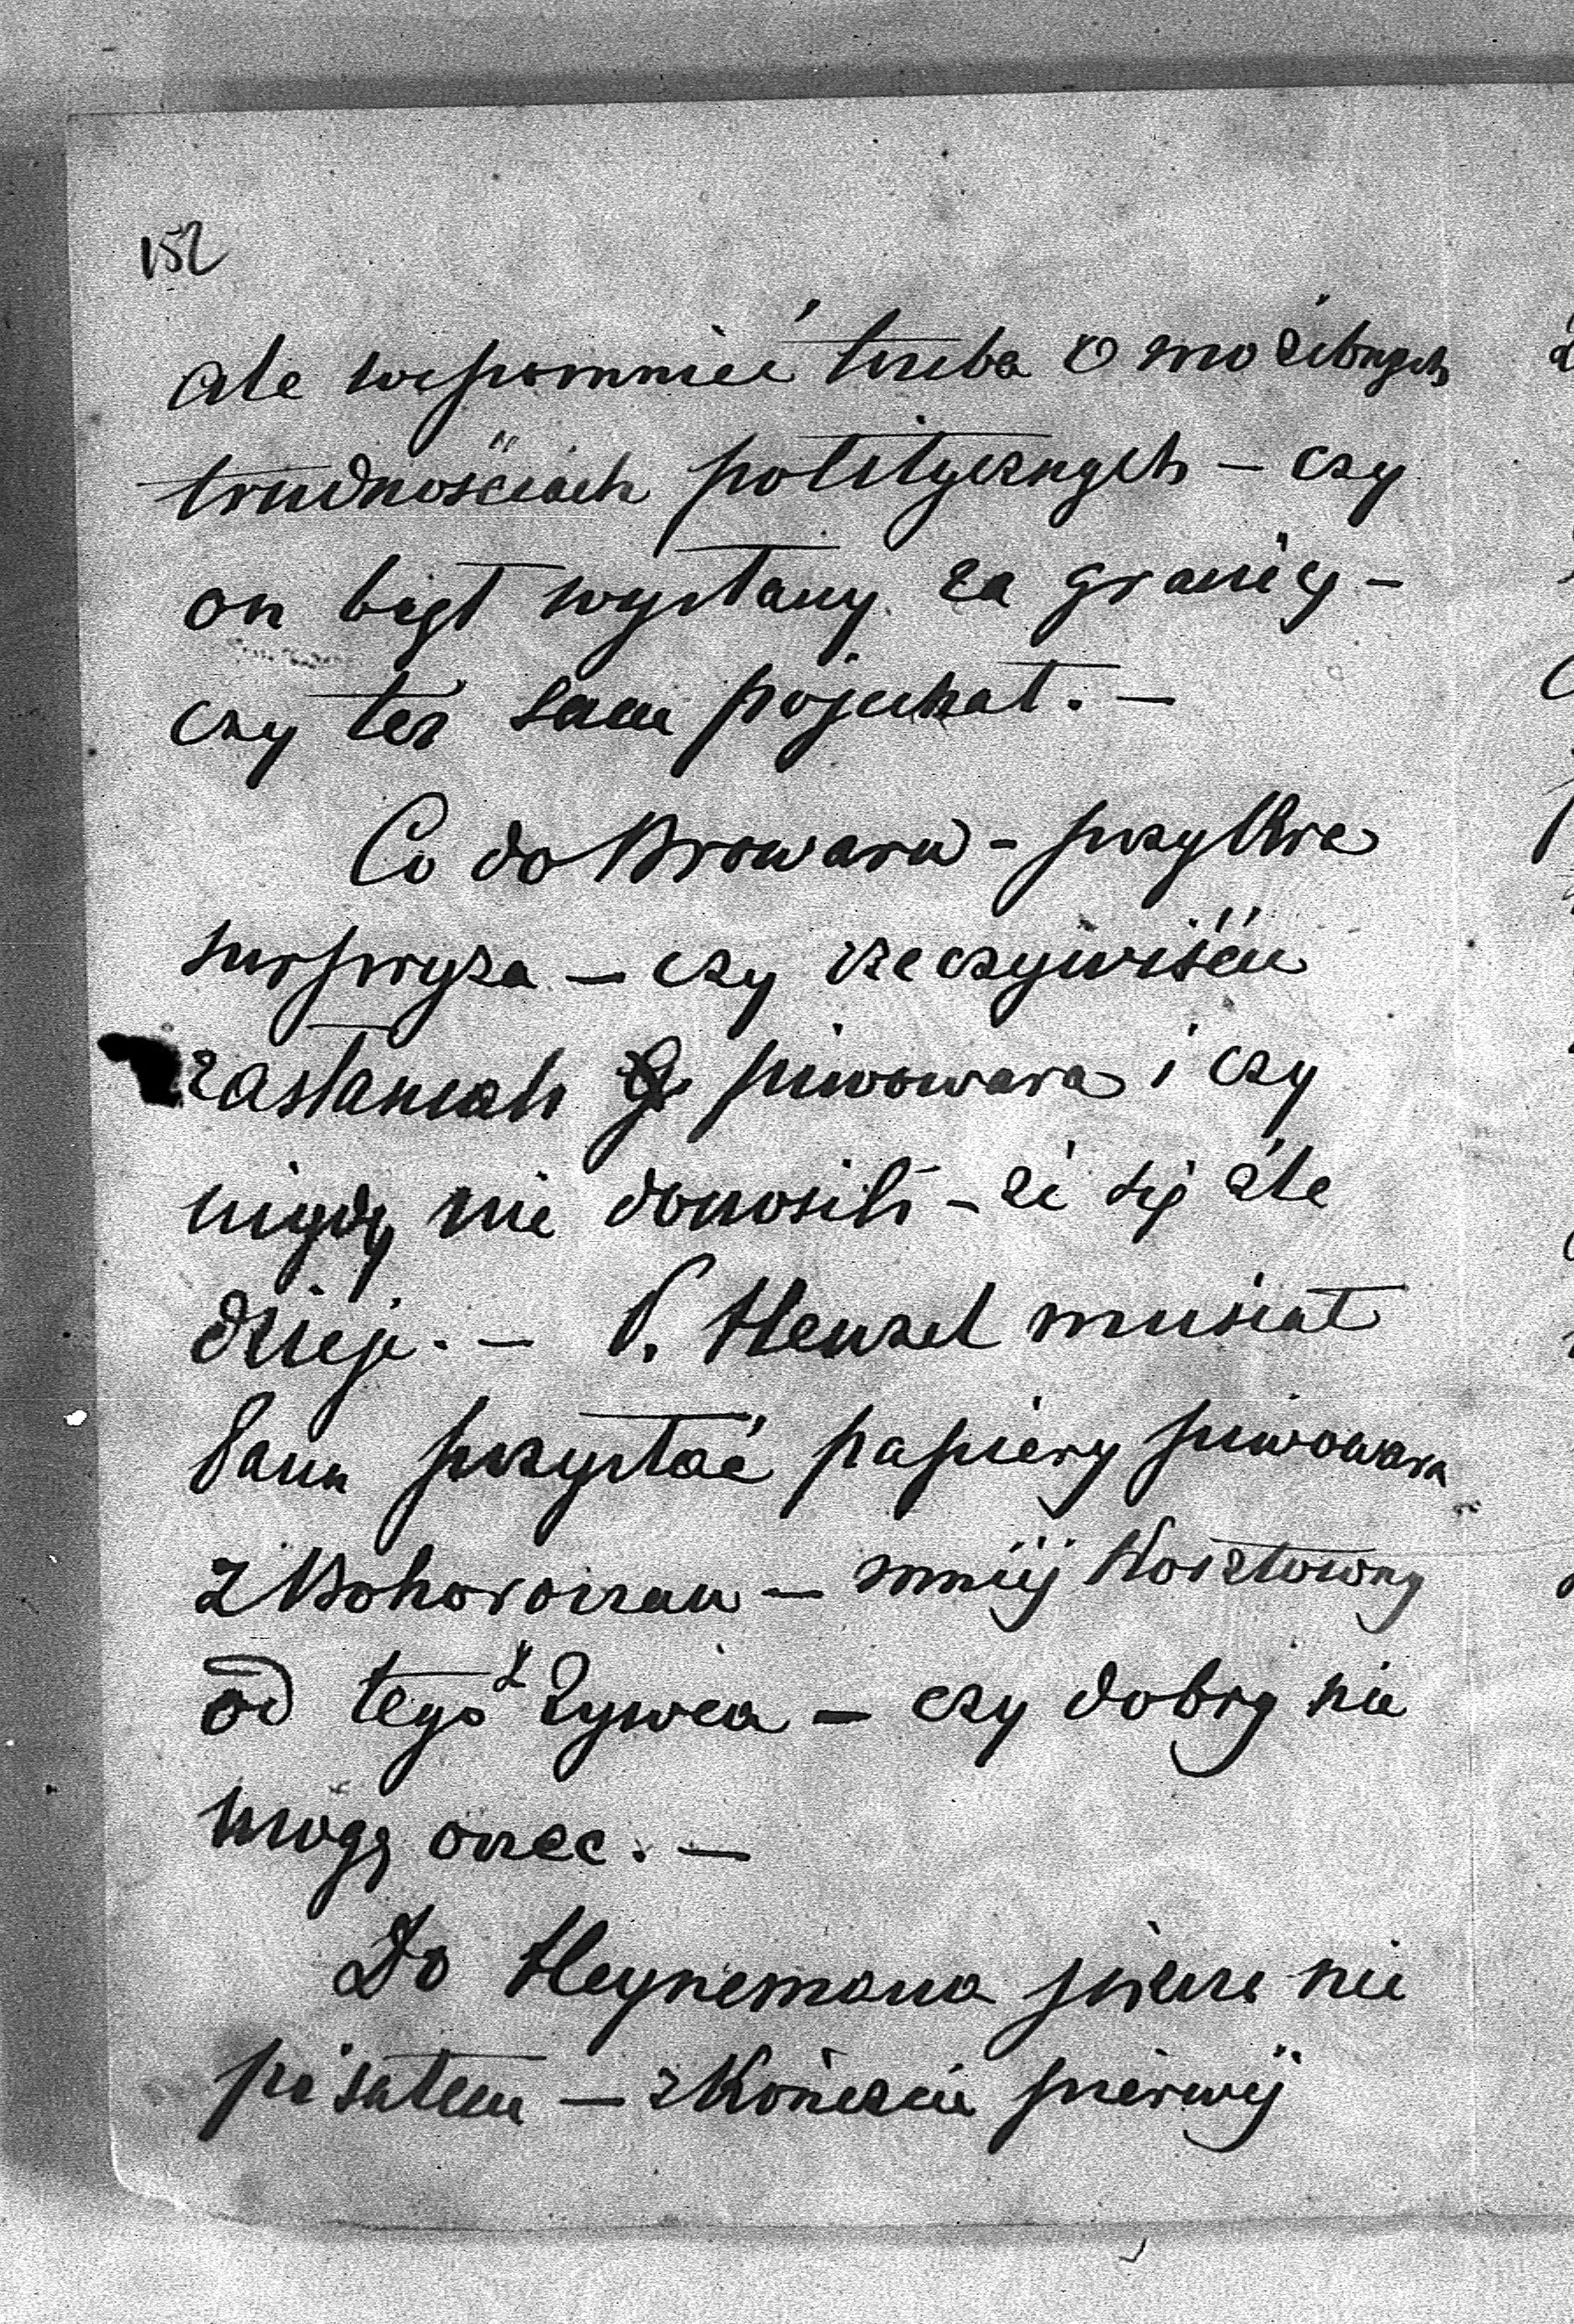 152
ale wspomnieć trzeba o możebnych
trudnościach politycznych – czy
on był wysłany za granicę –
czy też sam pojechał. –
Co do Browaru – przykra
surpryza – czy rzeczywiście
zasłaniali piwowara i czy
nigdy nie donosili – że się źle
dzieje. – P. Henzel musiał
Panu przysłać papiery piwowara
z Bohorodczan – mniej kosztowny
od tego z Żywca – czy dobry nie
mogę orzec. –
Do Heynemana jeszcze nie
pisałem – zkończcie pierwej